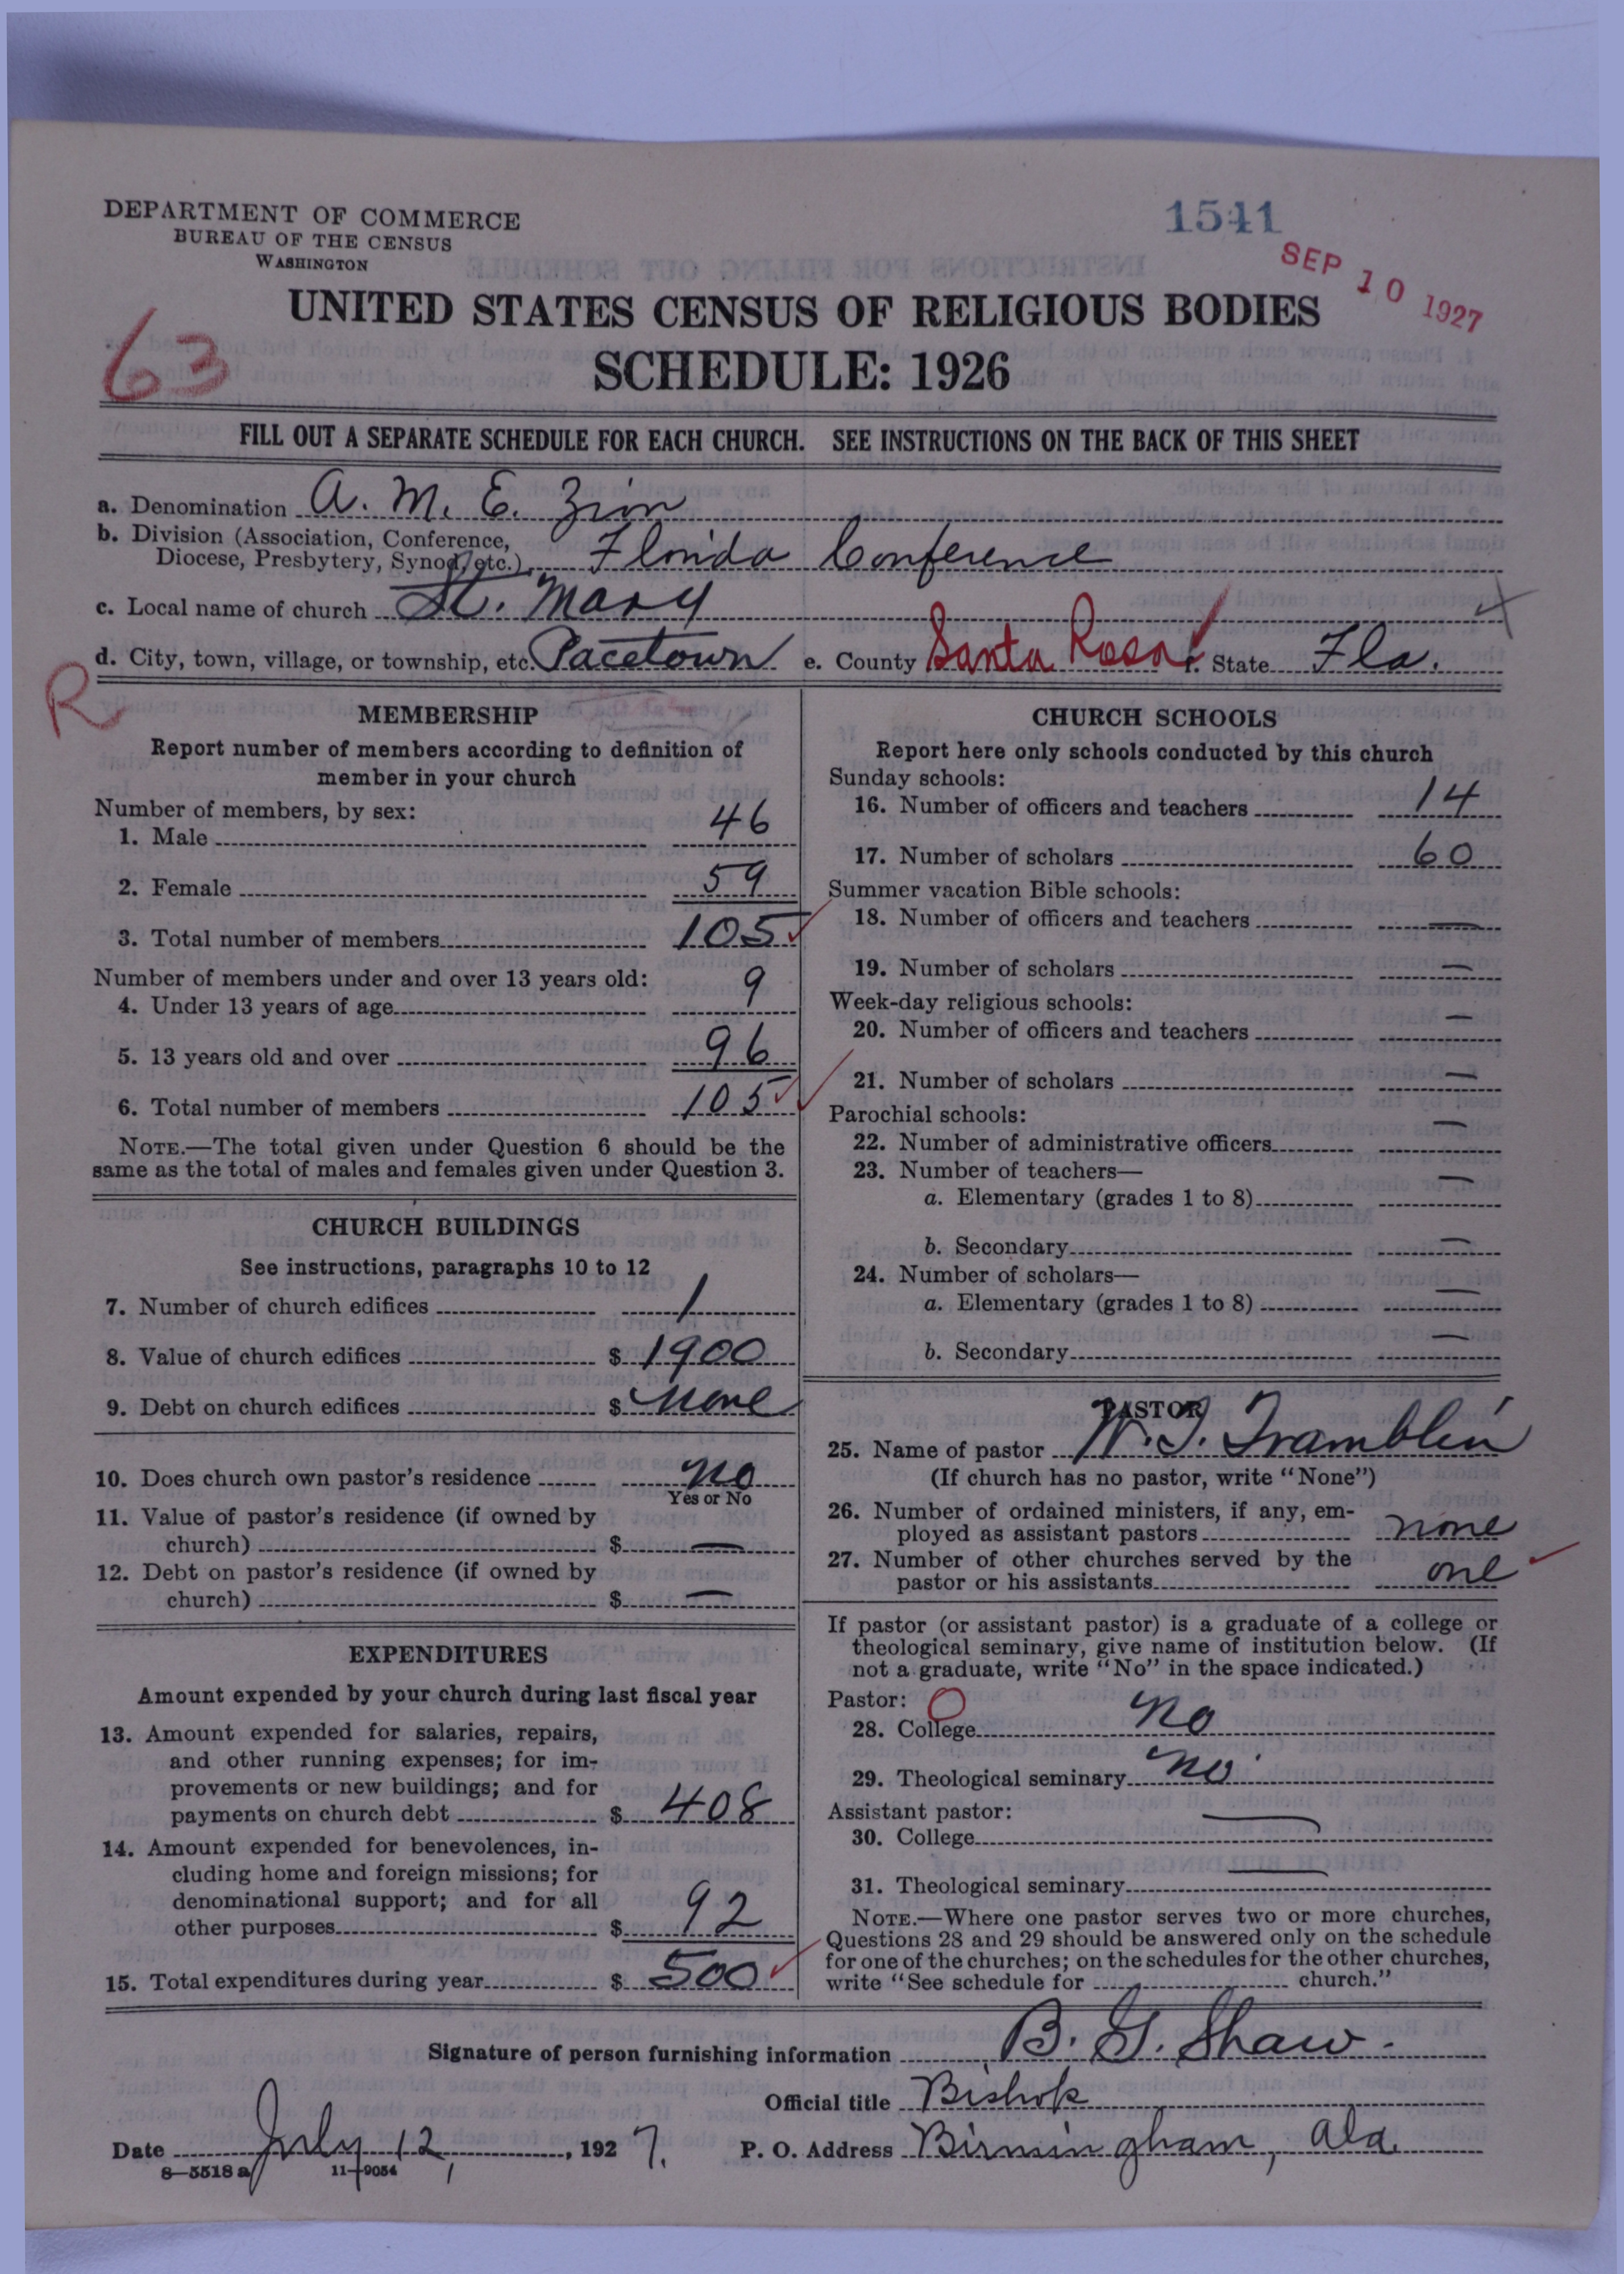 DEPARTMENT OF COMMERCE
BUREAU OF THE CENSUS
WASHINGTON
1541
SEP 10 1927
UNITED STATES CENSUS OF RELIGIOUS BODIES
SCHEDULE: 1926
63
FILL OUT A SEPARATE SCHEDULE FOR EACH CHURCH. SEE INSTRUCTIONS ON THE BACK OF THIS SHEET
a. Denomination A. M. E. Zion
b. Division (Association, Conference,
Diocese, Presbytery, Synod, etc.) Florida Conference
c. Local name of church St. Mary
d. City, town, village, or township, etc. Pacetown e. County Santa Rosa f. State Fla.
R
MEMBERSHIP
Report number of members according to definition of
member in your church
Number of members, by sex:
1. Male 46
2. Female 59
3. Total number of members 105
Number of members under and over 13 years old:
4. Under 13 years of age 9
5. 13 years old and over 96
6. Total number of members 105
NOTE.—The total given under Question 6 should be the
same as the total of males and females given under Question 3.
CHURCH BUILDINGS
See instructions, paragraphs 10 to 12
7. Number of church edifices 1
8. Value of church edifices $ 1900
9. Debt on church edifices $ none
10. Does church own pastor's residence no
Yes or No
11. Value of pastor's residence (if owned by
church) $ —
12. Debt on pastor's residence (if owned by
church) $ —
EXPENDITURES
Amount expended by your church during last fiscal year
13. Amount expended for salaries, repairs,
and other running expenses; for im-
provements or new buildings; and for
payments on church debt $ 408
14. Amount expended for benevolences, in-
cluding home and foreign missions; for
denominational support; and for all
other purposes $ 92
15. Total expenditures during year $ 500
CHURCH SCHOOLS
Report here only schools conducted by this church
Sunday schools:
16. Number of officers and teachers 14
17. Number of scholars 60
Summer vacation Bible schools:
18. Number of officers and teachers —
19. Number of scholars —
Week-day religious schools:
20. Number of officers and teachers —
21. Number of scholars —
Parochial schools:
22. Number of administrative officers —
23. Number of teachers—
a. Elementary (grades 1 to 8) —
b. Secondary —
24. Number of scholars—
a. Elementary (grades 1 to 8) —
b. Secondary —
PASTOR
25. Name of pastor W. I. Tramblin
(If church has no pastor, write "None")
26. Number of ordained ministers, if any, em-
ployed as assistant pastors none
27. Number of other churches served by the
pastor or his assistants one
If pastor (or assistant pastor) is a graduate of a college or
theological seminary, give name of institution below. (If
not a graduate, write "No" in the space indicated.)
Pastor: O
28. College no
29. Theological seminary no
Assistant pastor:
30. College —
31. Theological seminary —
NOTE.—Where one pastor serves two or more churches,
Questions 28 and 29 should be answered only on the schedule
for one of the churches; on the schedules for the other churches,
write "See schedule for church."
Signature of person furnishing information B. G. Shaw.
Official title Bishop
Date July 12, 1927. P. O. Address Birmingham, Ala.
8—5518a 11—9054